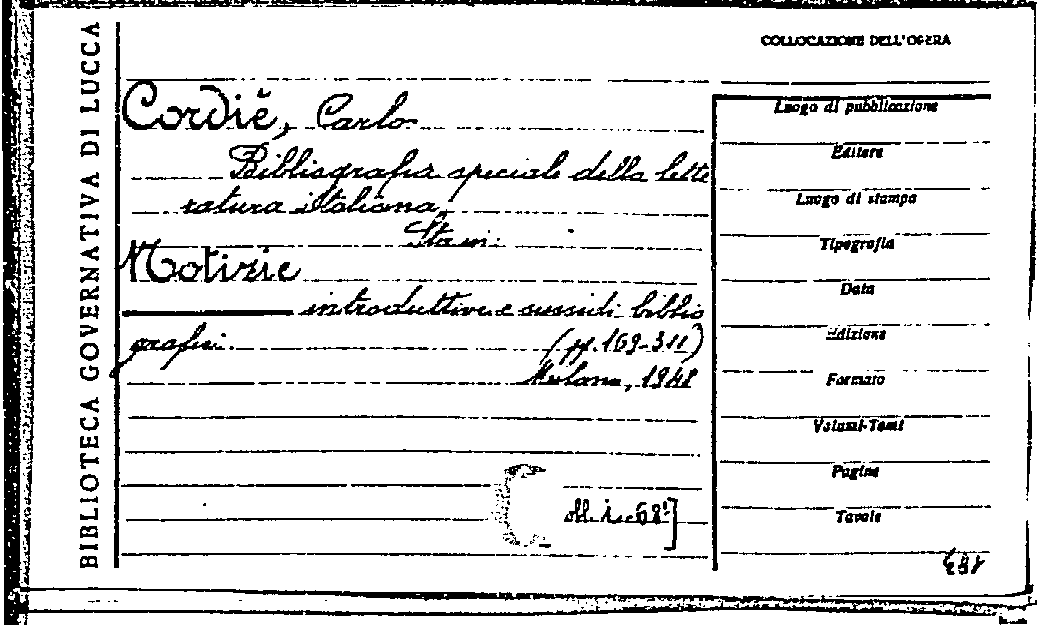 BIBLIOTECA GOVERNATIVA DI LUCCA
COLLOCAZIONE DELL'OPERA
Cordiè, Carlo
Bibliografia speciale della lette
ratura italiana.
Sta in:
Notizie
introduttive e sussidi biblio
grafici.
(pp. 169-311)
Milano, 1948
Luogo di pubblicazione
Editore
Luogo di stampa
Tipografia
Data
Edizione
Formato
Volumi-Tomi
Pagine
Tavole